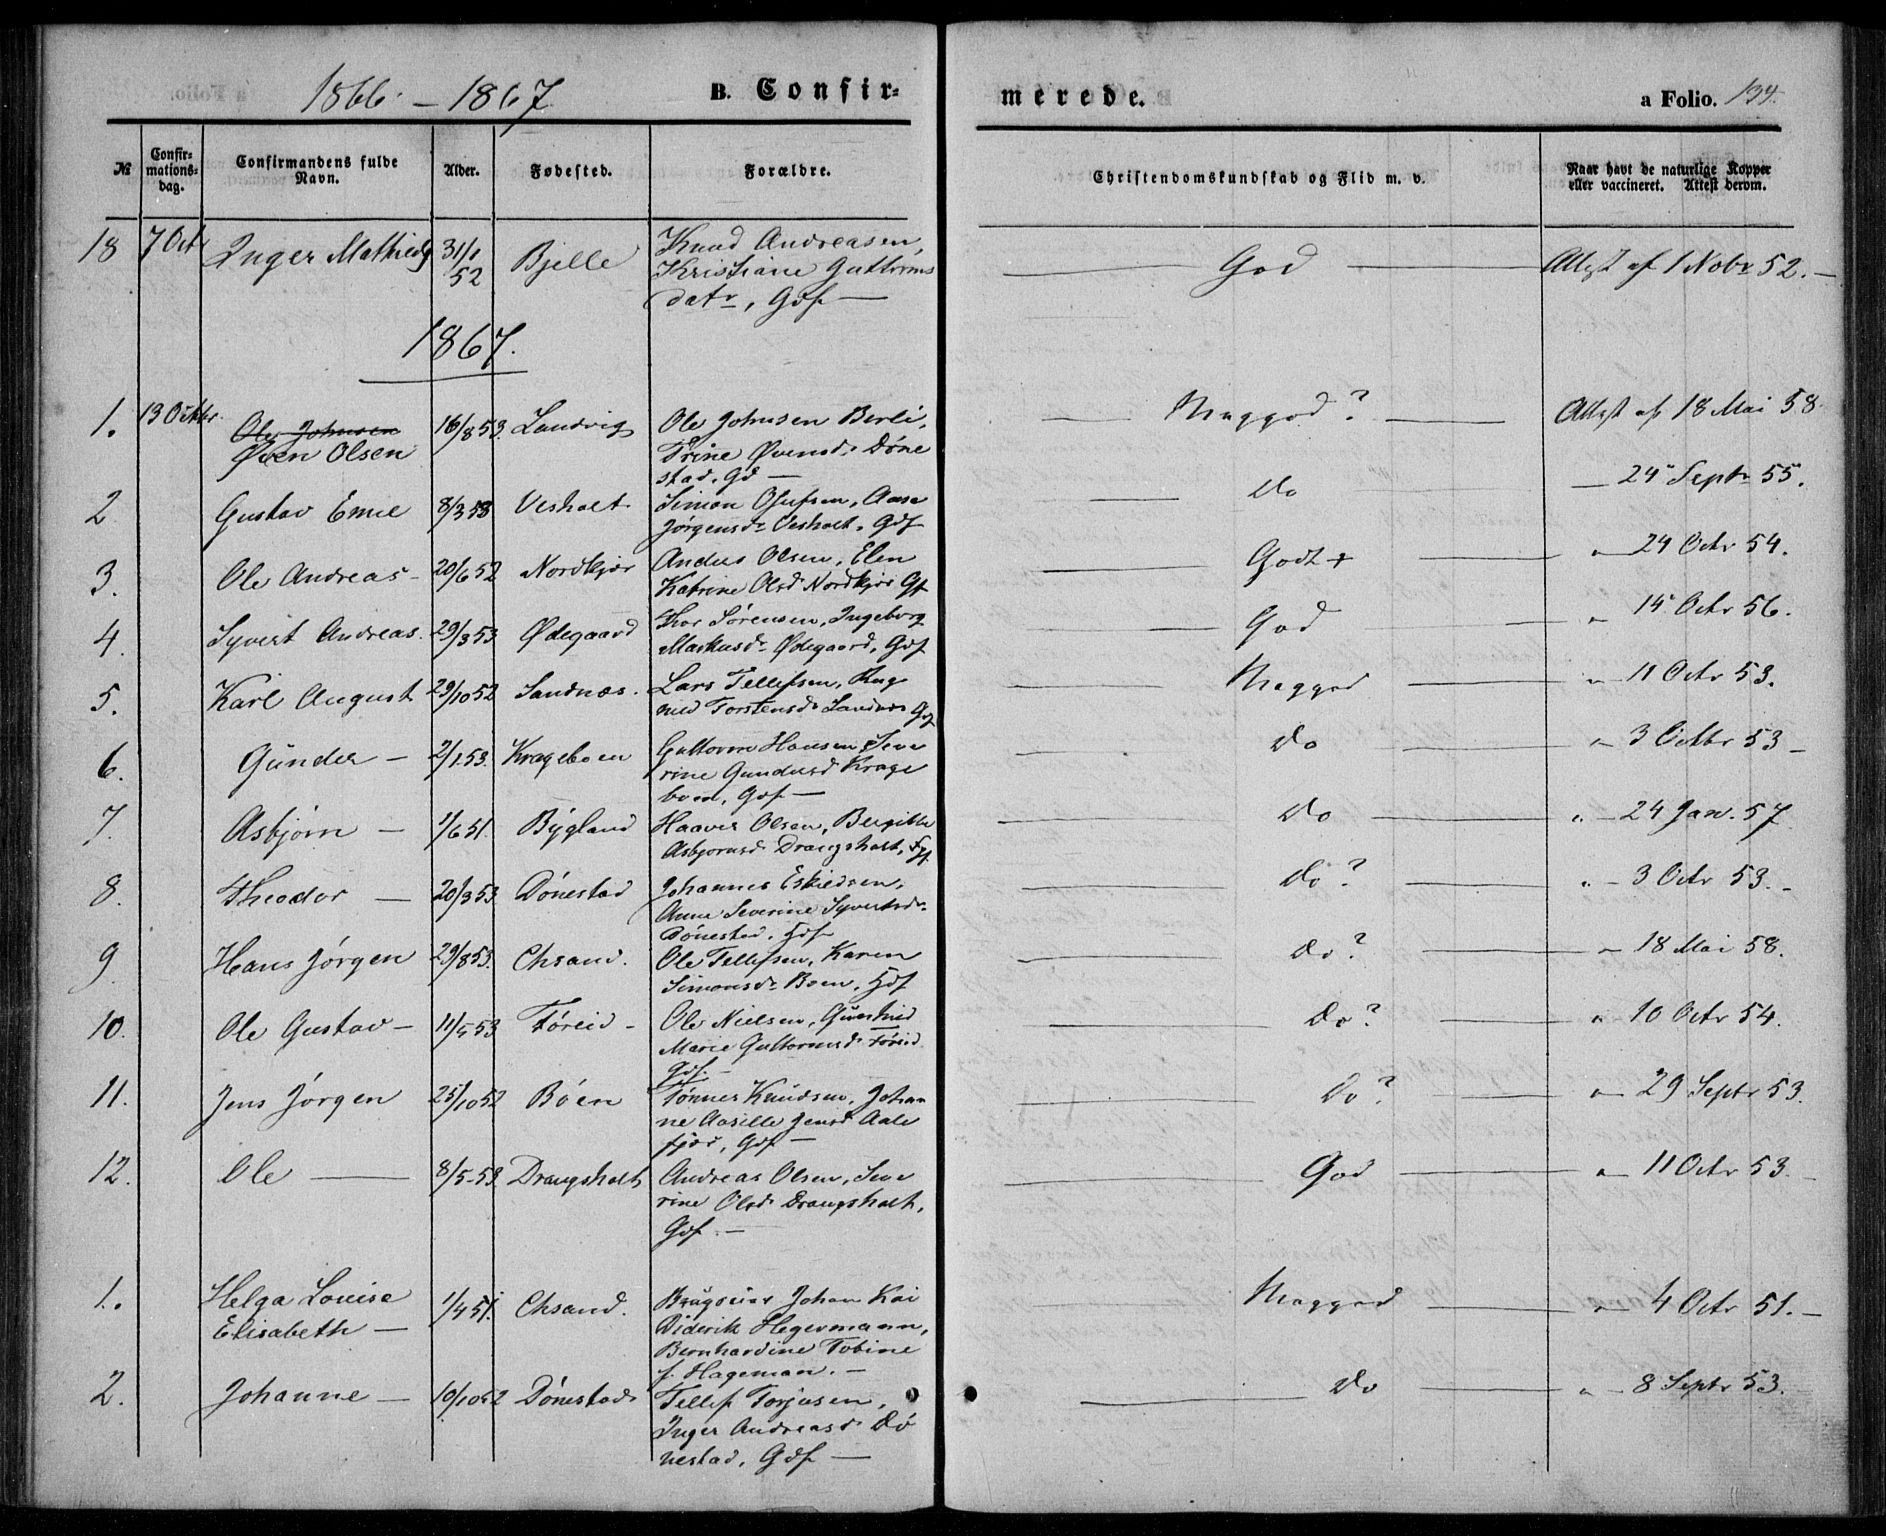 1866 - 1867
B. Confir-
merede.
a Folio. 134.
№
Confir-
mations-
dag.
Confirmandens fulde
Navn.
Alder.
Fødested.
Forældre.
Christendomskundskab og Flid m. v.
Naar havt de naturlige Kopper
eller vaccineret. Attest derom.
18 7 Oct Inger Mathilde 31/1 52 Bjelle Knud Andreasen,
Kristiane Guttorms
datr, Gdf —
God
Attest af 1 Nobr 52. —
1867.
1. 13 Octbr. Ole Johnsen
Øven Olsen 16/8 53. Landvig Ole Johnsen Berli,
Trine Øvensd. Døne
stad, Gd —
Meggod?
Attest af 18 Mai 58
2 Gustav Emil 8/3 53 Vesholt Simon Olufsen, Aase
Jørgensdr Vesholt, Gdf
Do
— 24 Septr 55.
3. Ole Andreas 20/6 52 Nordkjær Anders Olsen, Elen
Katrine Olsdr Nordkjær Gf
Godt +
" 24 Octr 54.
4. Syvert Andreas. 29/3 53 Ødegaard Thor Sørensen, Ingeborg
Markusdr Ødegaard, Gdf
God
" 15 Octr 56.
5. Karl August 29/10 52 Sandnæs. Lars Tellefsen, Rag
nild Torstensdr Sandnæs Gdf
Meggod
" 11 Octr 53.
6. Gunder — 2/1 53. Krageboen Guttorm Hansen, Seve
rine Gundersd Krage
boen, Gdf —
Do
" 3 Octbr 53 —
7. Asbjørn — 1/6 51. Bygland Haaver Olsen, Bergitte
Asbjørnsd Drangsholt, Gdf
Do
" 24 Jan. 57.
8. Theodor — 20/3 53 Dønestad Johannes Eskildsen,
Anne Severine Syvertsdr
Dønestad, Gdf
Do?
" 3 Octr 53. —
9. Hans Jørgen 29/8 53. Chsand. Ole Tellefsen, Karen
Simonsdr Boen, Gdf
Do?
" 18 Mai 58.
10. Ole Gustav — 11/5 53 Føreid — Ole Nielsen, Gunhild
Marie Guttormsd Føreid
Gdf. —
Do?
" 10 Octr 54.
11. Jens Jørgen 25/10 52 Bøen Tønnes Knudsen, Johan
ne Aasille Jensd Aale
fjær, Gdf —
Do?
" 29 Septr 53.
12. Ole — 8/5 53 Drangsholt Andreas Olsen, Seve
rine Olsdr Drangsholt,
Gdf. —
God
" 11 Octr 53.
1. Helga Louise
Elisabeth — 1/4 51. Chsand. Brugseier Johan Kai
Diderik Hegermann,
Bernhardine Tobine
f. Hageman. —
Meggod
" 4 Octr 51. —
2. Johanne — 10/10 52 Dønestad Tellef Torjusen,
Inger Andreasd Dø
nestad, Gdf —
Do
" 8 Septr 53.